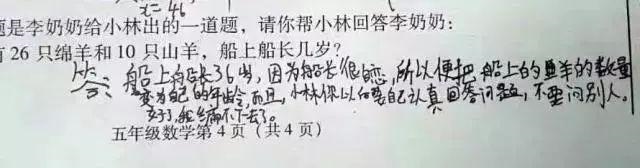 x=46
题是李奶奶给小林出的一道题，请你帮小林回答李奶奶：
有26只绵羊和10只山羊，船上船长几岁？
答：船上船长36岁，因为船长很，所以便把船上的羊的数量
变为自己的年龄，而且，小林你以后要自己认真回答问题，不要问别人。
好了，我编不下去了。
五年级数学第4页（共4页）